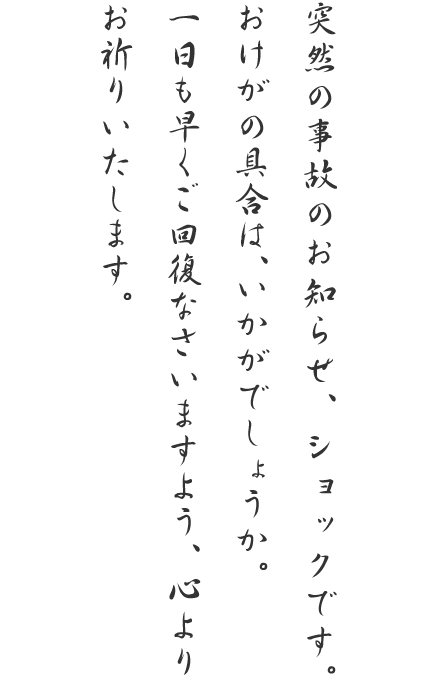 突然の事故のお知らせ、ショックです。
おけがの具合は、いかがでしょうか。
一日も早くご回復なさいますよう、心より
お祈りいたします。